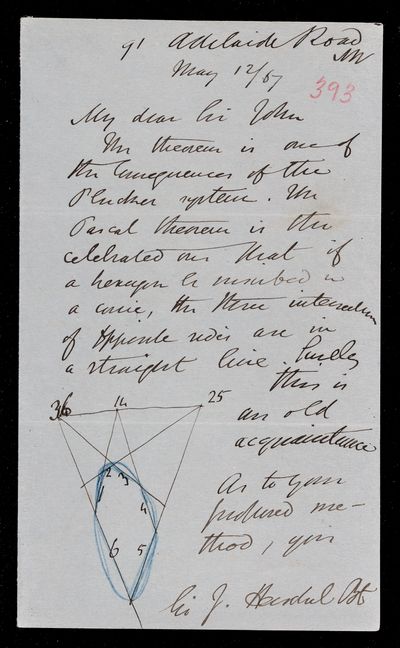 91 Adelaide Road
NW
May 12/67
393
My dear Sir John
The theorem is one of
the consequences of the
Plucker system. The
Pascal theorem is the
celebrated one that if
a hexagon be inscribed in
a conic, the three intersections
of opposite sides are in
a straight line. Surely
this is
an old
acquaintance
As to your
proposed me-
thod, you
Sir J. Herschel Bt
36 14 25
1 2 3 4 5 6